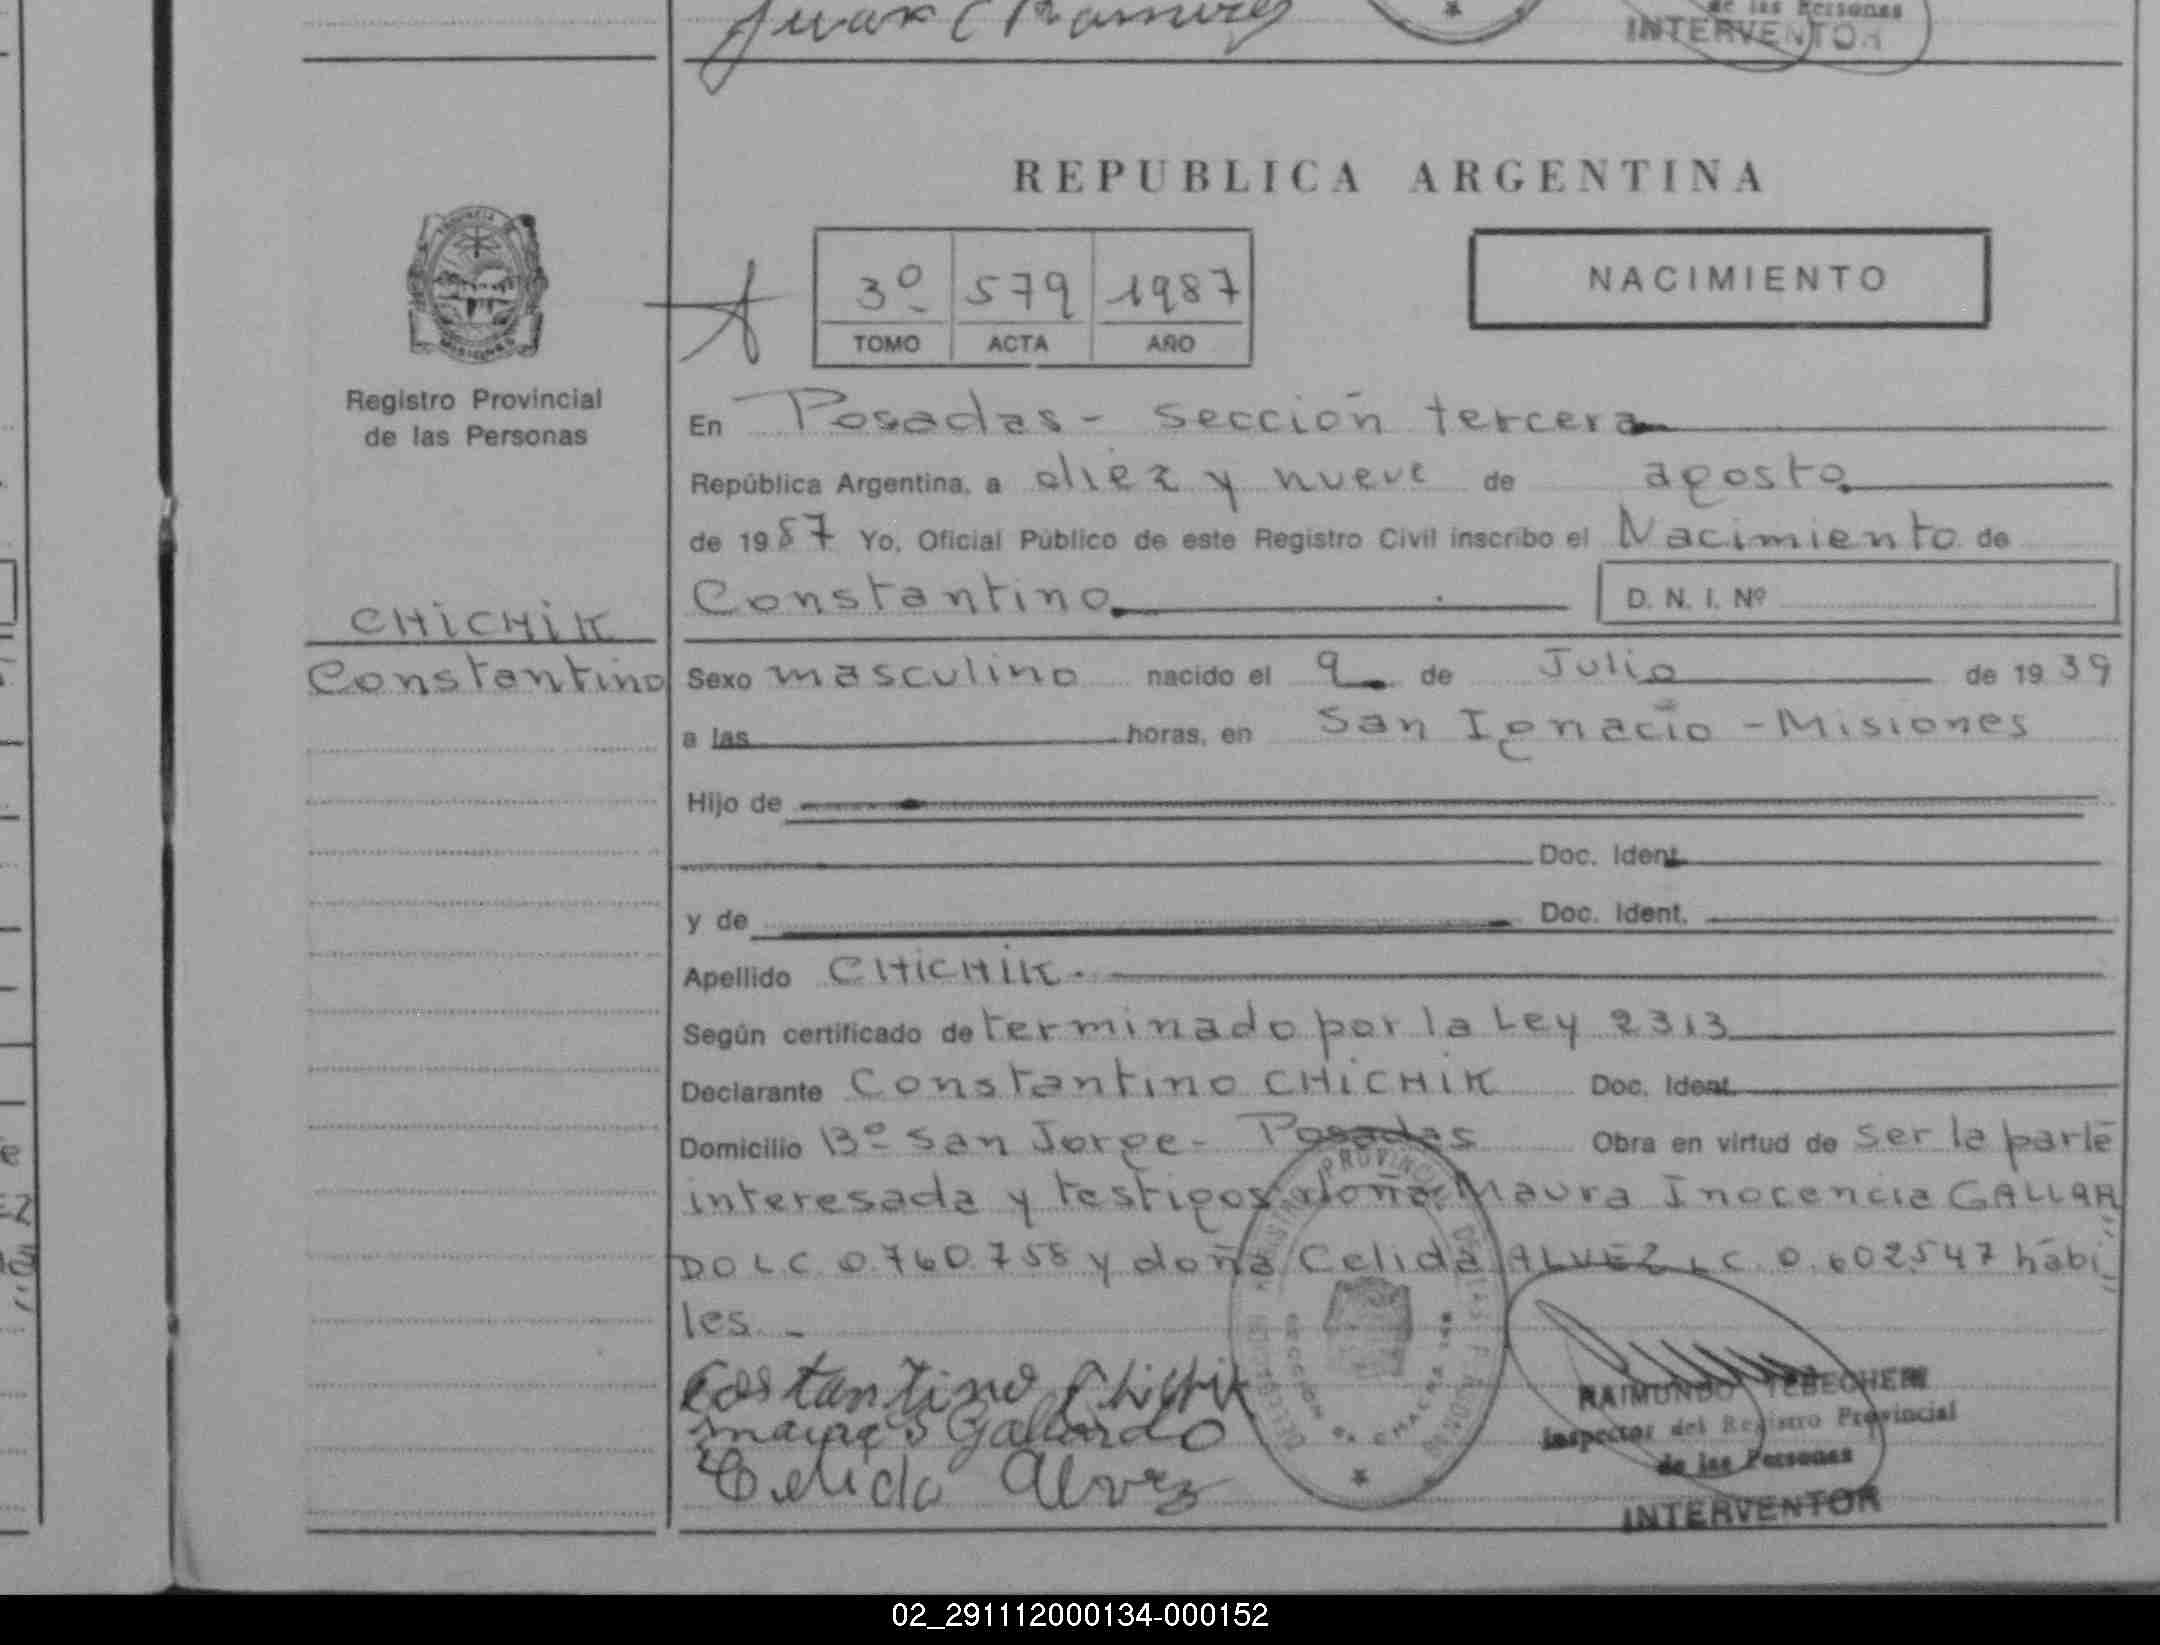 Juan C Ramirez
de las Personas
INTERVENTOR
REPUBLICA ARGENTINA
3º 579 1987
TOMO ACTA AÑO
NACIMIENTO
PROVINCIA
MISIONES
Registro Provincial
de las Personas
CHICHIK
Constantino
En Posadas - Sección tercera
República Argentina, a diez y nueve de agosto
de 1987 Yo, Oficial Público de este Registro Civil inscribo el Nacimiento de
Constantino
D. N. I. Nº
Sexo masculino nacido el 9 de Julio de 1939
a las horas, en San Ignacio - Misiones
Hijo de
Doc. Ident.
y de Doc. Ident.
Apellido CHICHIK.
Según certificado determinado por la Ley 2313
Declarante Constantino CHICHIK Doc. Ident.
Domicilio Bº San Jorge - Posadas Obra en virtud de ser la parte
interesada y testigos doña Maura Inocencia GALLAR
DO L C 0.760.758 y doña Celida ALVEZ L C 0.602547 hábi
les. -
Costantino Chichik
Gallardo
Celida Alvez
SECCION CHACRA
RAIMUNDO TEBECHERI
Inspector del Registro Provincial
de las Personas
INTERVENTOR
02_291112000134-000152